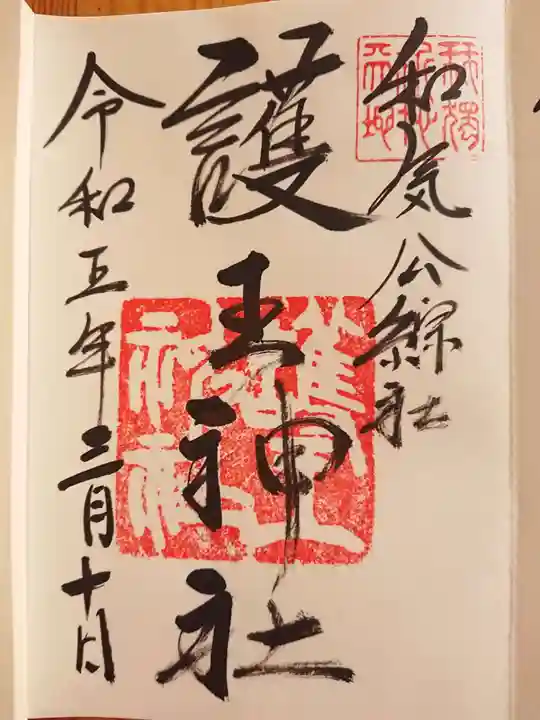 和気公綜社
護王神社
令和五年三月十日